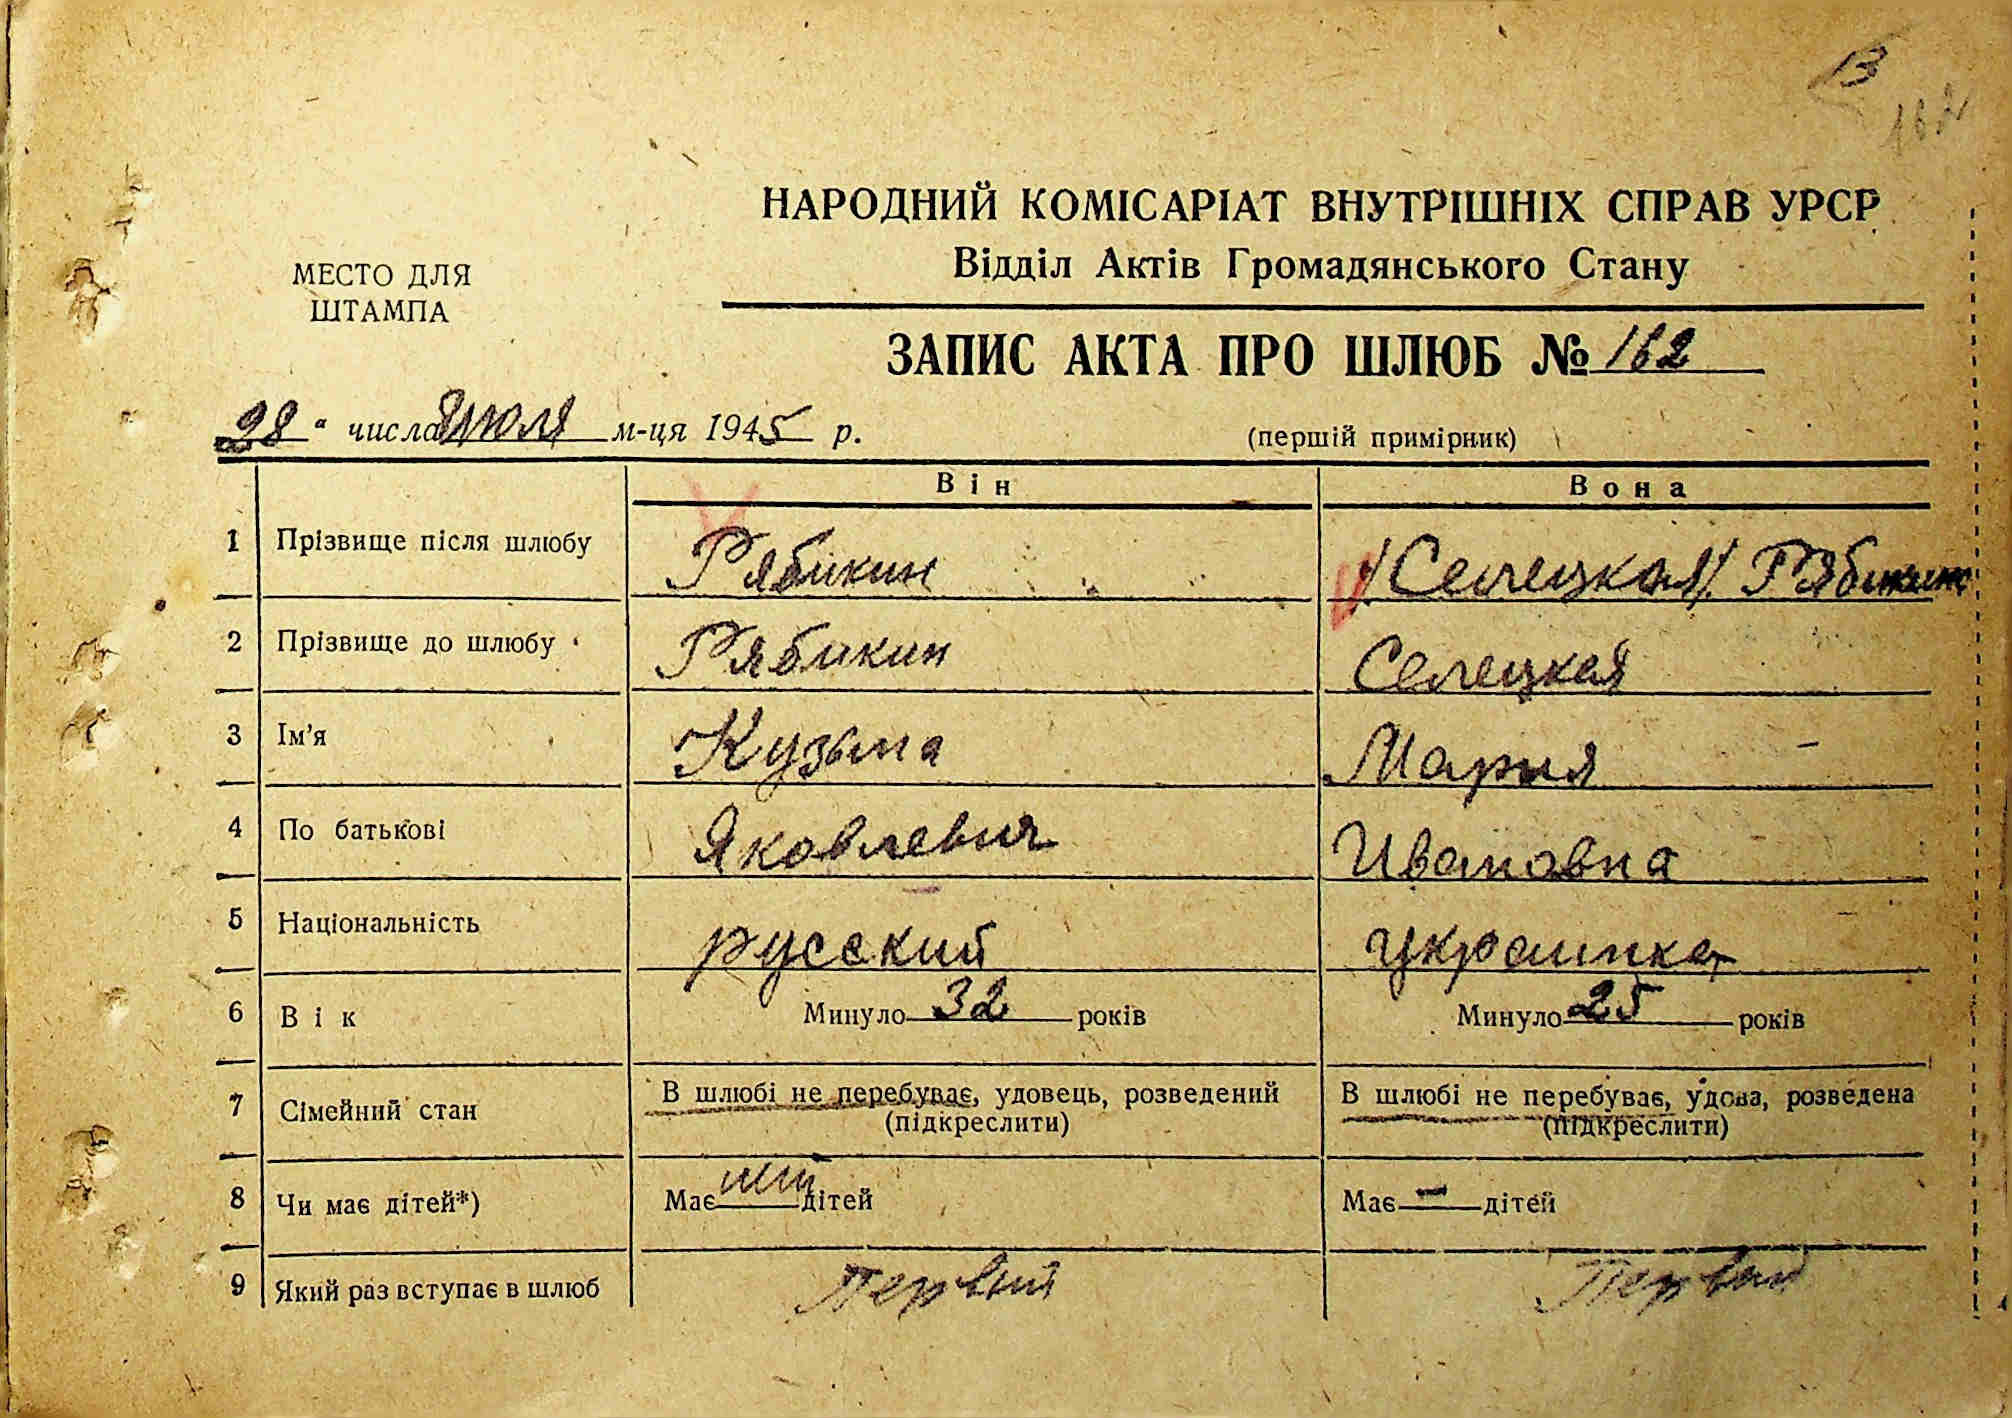 13
162
НАРОДНИЙ КОМІСАРІАТ ВНУТРІШНІХ СПРАВ УРСР
Відділ Актів Громадянського Стану
МЕСТО ДЛЯ
ШТАМПА
ЗАПИС АКТА ПРО ШЛЮБ № 162
28 " числа Июля м-ця 1945 р.
(перший примірник)
Він Вона
1 Прізвище після шлюбу Рябикин /Селецкая/. Рябикин
2 Прізвище до шлюбу Рябикин Селецкая
3 Ім'я Кузьма Мария
4 По батькові Яковлевич Ивановна
5 Національність русский украинка
6 Вік Минуло 32 років Минуло 25 років
7 Сімейний стан В шлюбі не перебуває, удовець, розведений В шлюбі не перебуває, удова, розведена
(підкреслити) (підкреслити)
8 Чи має дітей*) Має дітей Має — дітей
9 Який раз вступає в шлюб Первий Первий